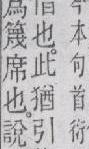 今本句首衍
借也。此猶引
爲篾席也。說